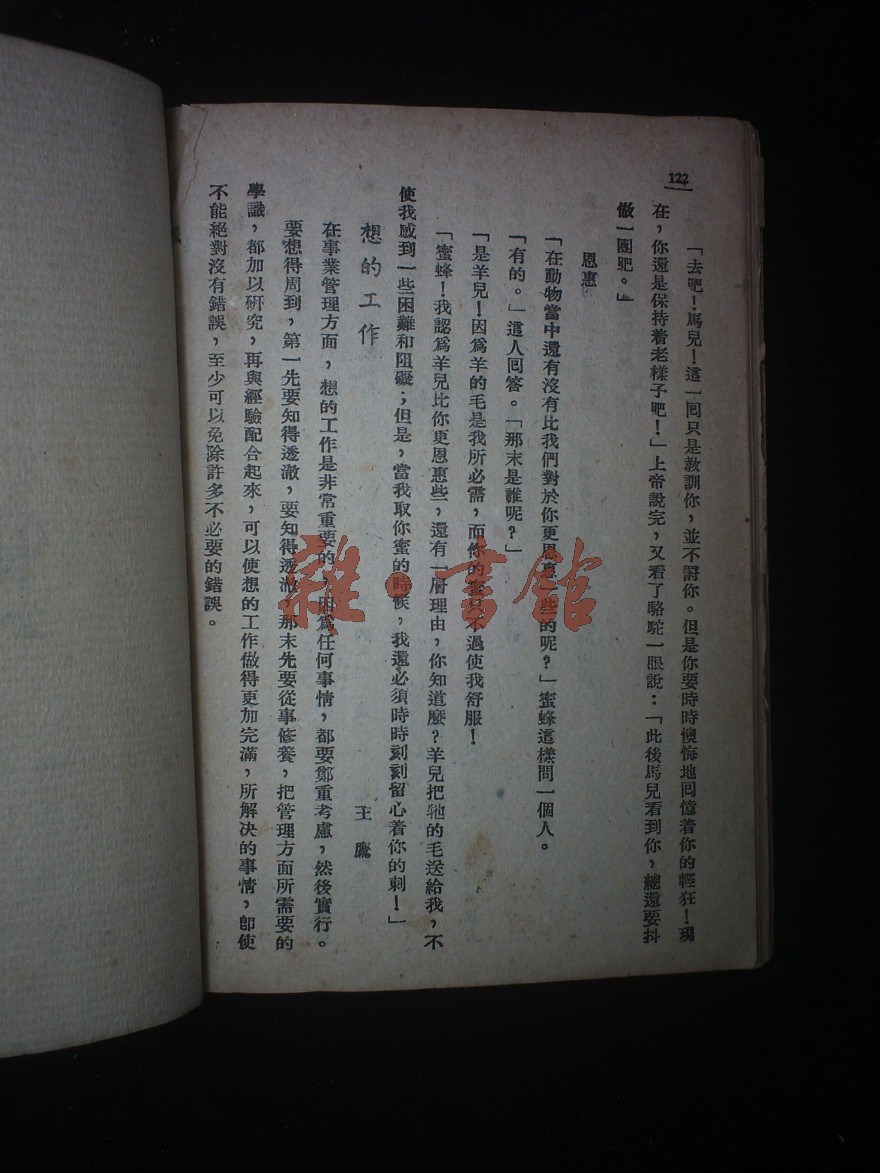 122
「去吧！馬兒！這一回只是教訓你，並不罰你。但是你要時時懊悔地回憶着你的輕狂！現
在，你還是保持着老樣子吧！」上帝說完，又看了駱駝一眼說：「此後馬兒看到你，總還要抖
做一團吧。」
恩惠
「在動物當中還有沒有比我們對於你更恩惠一些的呢？」蜜蜂這樣問一個人。
「有的。」這人回答。「那末是誰呢？」
「是羊兒！因爲羊的毛是我所必需，而你的蜜只不過使我舒服！
「蜜蜂！我認爲羊兒比你更恩惠些，還有一層理由，你知道麼？羊兒把牠的毛送給我，不
使我感到一些困難和阻礙；但是，當我取你蜜的時候，我還必須時時刻刻留心着你的刺！」
想的工作
王鷹
在事業管理方面，想的工作是非常重要的，因爲任何事情，都要鄭重考慮，然後實行。
要想得周到，第一先要知得透澈，要知得透澈，那末先要從事修養，把管理方面所需要的
學識，都加以研究，再與經驗配合起來，可以使想的工作做得更加完滿，所解決的事情，卽使
不能絕對沒有錯誤，至少可以免除許多不必要的錯誤。
雜·書館